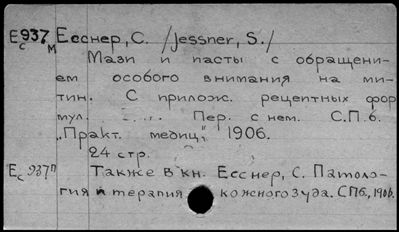 Ec937м Есснер, С. /Jessner, S./
Мази и пасты с обращени-
ем особого внимания на ми-
тин. С прилож. рецептных фор
мул. Пер. с нем. С.П.б.
„Практ. медиц", 1906.
24 стр.
Ec937п Также в кн. Есснер, С. Патоло-
гия и терапия кожного зуда. СПб., 1906.